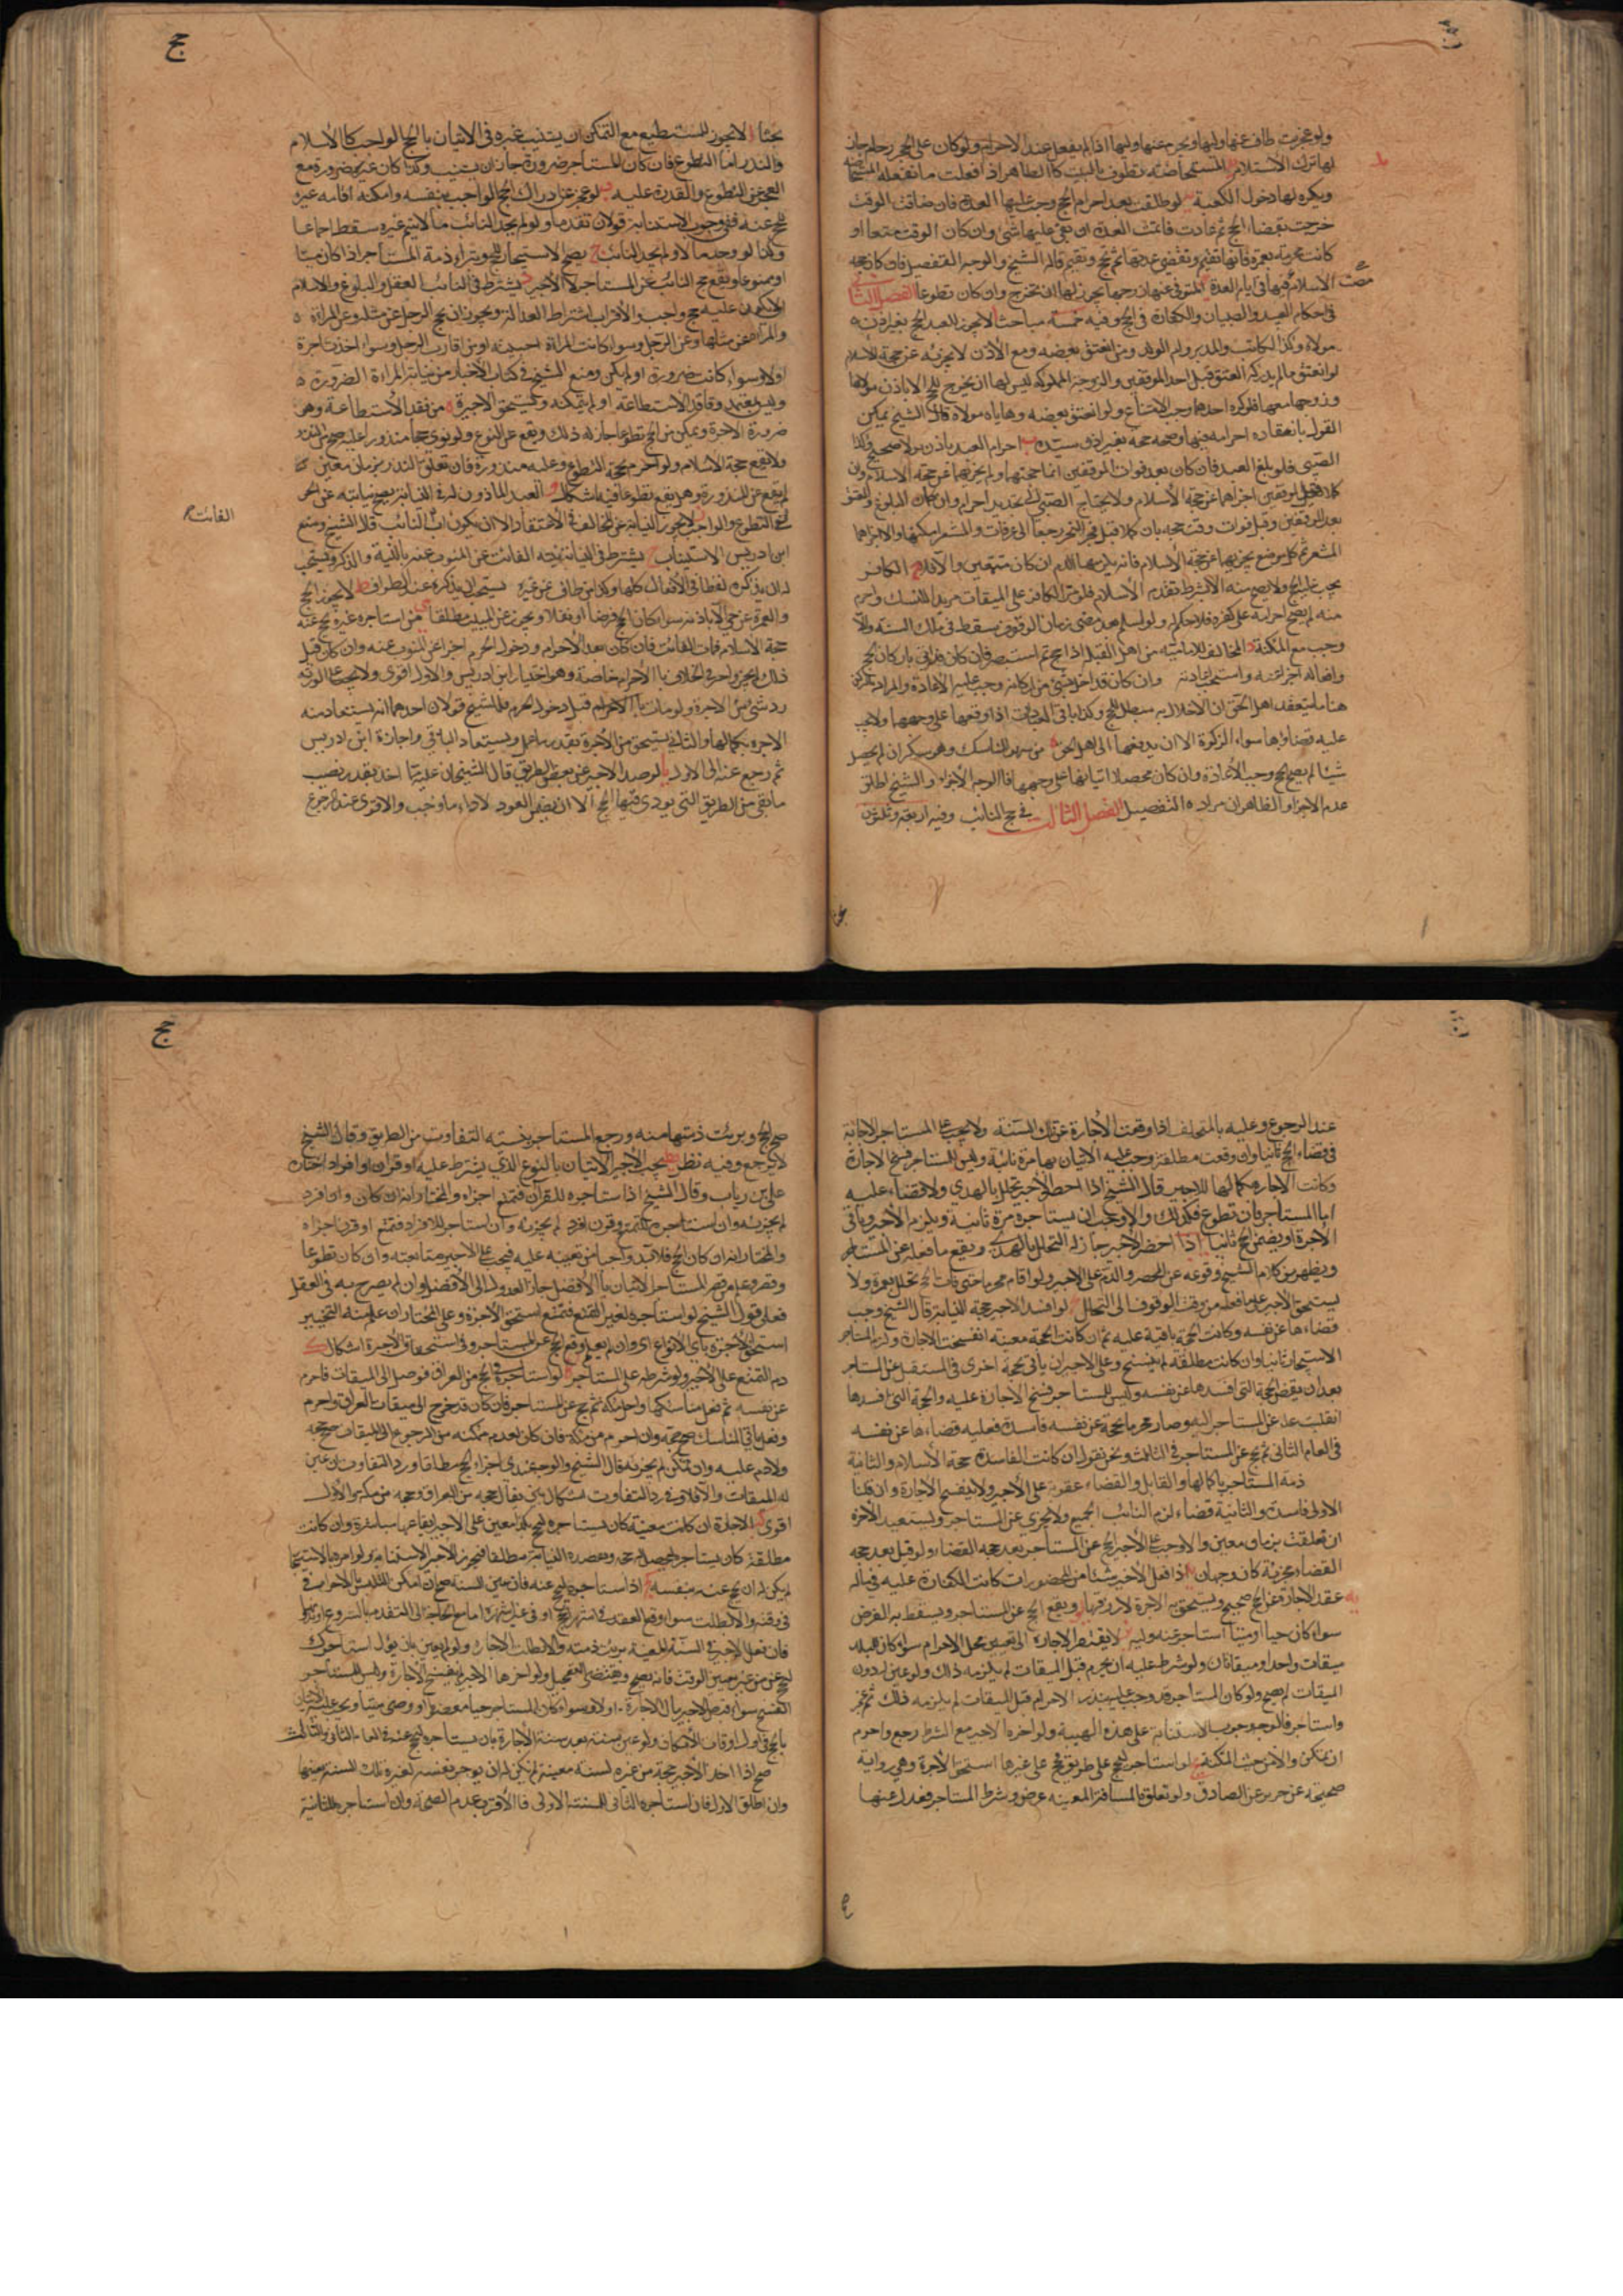 ولو عجزت طاف عنها وليها ويحرم عنها وليها اذا لم يعقل عند الاحرام ولو كان على الحجر زحام جاز
لها ترك الاستلام المستحاضة تطوف بالبيت كالطاهر اذا فعلت ما تفعله المستحاضة
ويكره لها دخول الكعبة لو طلقت بعد احرام الحج وجب عليها العدة فان ضاقت الوقت
خرجت بقضاء الحج ثم عادت فاتمت العدة ان بقى عليها شئ وان كان الوقت متسعا او
كانت محرمة بعمرة فانها تقيم وتقضي عدتها ثم تحج وتقيم قاله الشيخ والوجه التفصيل فان كان حجه
الاسلام فيها في ايام العدة المتوفى عنها زوجها يجوز لها ان تخرج وان كان تطوعا الفصل الثاني
في احكام العبيد والصبيان والكفار في الحج وفيه خمسة مباحث لا يجوز للعبد الحج بغير اذن
مولاه وكذا المكاتب والمدبر وام الولد ومن انعتق بعضه ومع الاذن لا يجزئه عن حجة الاسلام
لو انعتق ما لم يدركه العتق قبل احد الموقفين والزوجة المملوكة ليس لها ان يخرج للحج الا باذن مولاها
وزوجها معها فلو كره احدهما وجب الامتناع ولو انعتق بعضه وهاياه مولاه قال الشيخ يمكن
القول بانعقاد احرامه فيها وصحه حجه بغير اذن سيده احرام العبد باذن مولاه صحيح وكذا
الصبي فلو بلغ العبد فان كان بعد فوات الموقفين اتما حجتهما ولم يجزهما عن حجة الاسلام وان
كملا قبل الموقفين اجزاهما عن حجة الاسلام ولا يحتاج الصبي الى تجديد احرام وان كان البلوغ والعتق
بعد الموقفين وقبل فوات وقت حجه بان كملا قبل فجر النحر رجعا الى عرفات والمشعر ان امكنهما والا اجزاهما
المشعر ثم كل موضع يجزيهما عن حجة الاسلام فانه يلزمهما الدم ان كان متمتعين والا فلا الكافر
يجب عليه الحج ولا يصح منه الا بشرط تقدم الاسلام فلو مر الكافر على الميقات مريدا للنسك واحرم
منه لم يصح احرامه على كفره فلا حكم له ولو اسلم بعد مضى زمان الوقوف سقط في تلك السنة والا
وجب مع المكنة المخالف للامامية من اهل القبلة اذا حج ثم استبصر فان كان قد اتى باركان الحج
وافعاله اجزاته واستحب اعادته وان كان قد اخل بشئ من اركانه وجب عليه الاعادة والمراد بالركن
هنا ما يعتقد اهل الحق ان الاخلال به مبطل للحج وكذا باقي العبادات اذا اوقعها على وجهها ولا يجب
عليه قضاؤها سوا الزكوة الا ان يدفعها الى اهل الحق من شهد المناسك وهو سكران لم يحصل
شيئا لم يصح الحج وجب الاعادة وان كان محصلا اتيانها على وجهها فالوجه الاجزاء والشيخ اطلق
عدم الاجزاء والظاهر ان مراده التفصيل الفصل الثالث في حج النائب وفيه اربعة وثلثون
بحثا لا يجوز للمستطيع مع التمكن ان يستنيب غيره في الاتيان بالحج الواجب كالاسلام
والنذر اما التطوع فان كان المستاجر ضرورة جاز ان يستنيب وكذا ان كان غير ضرورة مع
العجز عن التطوع والقدرة عليه لو عجز عن ادراك الحج الواجب بنفسه وامكنه اقامه غيره
للحج عنه ففي وجوب الاستنابة قولان تقدما ولو لم يجد النائب مالا يتم غيره سقط اجماعا
وكذا لو وجد مالا ولم يجد النائب يصح الاستيجار للحج وتبراء ذمة المستاجر اذا كان ميتا
او ممنوعا ويقع حج النائب عن المستاجر لا الاجير يشترط في النائب العقل والبلوغ والاسلام
الا يكون عليه حج واجب والاقرب اشتراط العدالة ويجوز ان يحج الرجل عن مثله وعن المراة
والمراة عن مثلها وعن الرجل وسوا كانت المراة اجنبية او من اقارب الرجل وسواء اخذت اجرة
اولا وسواء كانت ضرورة او لم يكن ومنع الشيخ في كتاب الاخبار من نيابة المراءة الضرورة
وليس بمعتمد وفاقد الاستطاعة او لم يمكنه ويستحق الاجرة من فقد الاستطاعة وهو
ضرورة الاخرة ويمكن من الحج تطوعا جاز له ذلك ويقع عن التطوع ولو نوى حجا منذورا عليه صح عن النذر
ولا يقع حجة الاسلام ولو احرم بحجة التطوع وعليه منذورة فان تعلق النذر بزمان معين
لم يقع عن المنذورة وهل يقع تطوعا فيه اشكال العبد الماذون له في النيابة يصح نيابته عن الحر
في حج التطوع والواجب لا يجوز النيابة عن المخالف في الاعتقاد الا ان يكون اب النائب قاله الشيخ ومنع
ابن ادريس الاستيناب يشترط في النيابة نية الفائت عن المنوب عنه بالنية والذكر ويستحب
له ان يذكره لفظا في الافعال كلها وكذا من طاف عن غيره يستحب له ان يذكره عند الطواف لا يجوز الحج
والعمرة عن حي الا باذنه سواء كان الحج فرضا او نفلا ويجوز عن الميت مطلقا من استاجره غيره ليحج عنه
حجة الاسلام فمات النائب فان كان بعد الاحرام ودخول الحرم اجزا عن المنوب عنه وان كان قبل
ذلك لم يجز واجتزا في الخلاف بالاحرام خاصة وهو اختيار ابن ادريس والاول اقوى ولا يجب على الورثة
رد شئ من الاجرة ولو مات بعد الاحرام قبل دخول الحرم فللشيخ قولان احدهما انه يستعاد منه
الاجرة بكمالها والثاني يستحق من الاجرة بقدر ما عمل ويستعاد الباقي واجازة ابن ادريس
ثم رجع عنه الى الاول لو صد الاجير عن بعض الطريق قال الشيخان عليه مما اخذ بقدر نصيب
ما بقى من الطريق التي يودى فيها الحج الا ان يضمن العود لاداء ما وجب والاقوى عند الرجوع
الفائت
عند الرجوع وعليه بالمتخلف اذا وقعت الاجارة عن تلك السنة ولا يجب على المستاجر الاجابة
في قضاء الحج ثانيا وان وقعت مطلقة وجب عليه الاتيان بها مرة ثانية وليس للمستاجر فسخ الاجارة
وكانت الاجارة بكمالها للاجير قال الشيخ اذا احصر الاجير تحلل بالهدي ولا قضاء عليه
اما المستاجر فان تطوع فكذلك والا وجب ان يستاجره مرة ثانية ويلزم الاجير باقي
الاجرة او يضمن الحج ثانيا اذا احصر الاجير جاز له التحلل بالهدي ويقع ما فعله عن المستاجر
ويظهر من كلام الشيخ وقوعه عن المحصر والدم على الاجير ولو اقام محرما حتى فات الحج تحلل بعمرة ولا
يستحق الاجير على ما فعله من وقت الوقوف الى التحلل لو افسد الاجير حجة النيابة قال الشيخ وجب
قضاءها عن نفسه وكانت الحجة باقية عليه ثم ان كانت الحجة معينة انفسخت الاجارة ولزم المستاجر
الاستيجار ثانيا وان كانت مطلقة لم ينفسخ وعلى الاجير ان ياتي بحجة اخرى في المستقبل عن المستاجر
بعد ان يقضى الحجة التي افسدها عن نفسه وليس للمستاجر فسخ الاجارة عليه والحجة التي افسدها
انقلبت عليه عن المستاجر اليه وصار محرما بحجة عن نفسه فاسدة فعليه قضاءها عن نفسه
في العام الثاني ثم يحج عن المستاجر في الثالث ونحن نقول ان كانت الفاسدة حجة الاسلام والثانية
ذمة المستاجر باكمالها والقابل والقضاء عقوبة على الاجير ولا ينفسخ الاجارة وان قلنا
الاولى فاسدة والثانية قضاء لزم النائب الجميع ولا يجزي عن المستاجر ويستعيد الاجرة
ان تعلقت بزمان معين والا وجب على الاجير الحج عن المستاجر بعد حجه القضاء ولو قيل بعد حجه
القضاء مجزئة كان وجها ان فعل الاجير شيئا من المحظورات كانت الكفارة عليه في ماله
عقد الاجارة عن الحج صحيح ويستحق به الاجرة لا رزقها ويقع الحج عن المستاجر ويسقط به الفرض
سوا كان حيا او ميتا استاجر عنه وليه لا يفتقر الاجارة الى تعيين محل الاحرام سواء كان للبلد
ميقات واحد او ميقاتان ولو شرط عليه ان يحرم قبل الميقات لم يلزمه ذلك ولو عين له دون
الميقات لم يصح ولو كان المستاجر قد وجب عليه بنذر الاحرام قبل الميقات لم يلزمه ذلك ثم عجز
واستاجر فالوجه وجوب الاستنابة على هذه الهيئة ولو اخره الاجير مع الشرط رجع واحرم
ان تمكن والا فمن حيث المكنة لو استاجر ليحج على طريق فحج على غيرها استحق الاجرة وهي رواية
صحيحة عن حريز عن الصادق ولو تعلق بالمسافة المعينة غرض وشرط المستاجر فعدل عنها
صح الحج وبرئت ذمتها منه ورجع المستاجر بنسبة التفاوت من الطريق وقال الشيخ
لا يرجع وفيه نظر يجب على الاجير الاتيان بالنوع الذي يشترط عليه او قران او افراد اختاره
علي بن رياب وقال الشيخ اذا استاجره للقران فتمتع اجزاه والمختار انه ان كان وان افرد
لم يجزئه وان استاجره للتمتع وقرن او افرد لم يجزئه وان استاجر للافراد فتمتع او قرن اجزاه
والمختار انه ان كان الحج فلا بد واجبا من تعيينه عليه فيجب على الاجير متابعته وان كان تطوعا
وقصر وعلم من قصد المستاجر الاتيان بالافضل جاز العدول الى الافضل وان لم يصرح به في العقد
فعلى قول الشيخ لو استاجره لغير التمتع فتمتع استحق الاجرة وعلى المختار ان علم منه التخيير
استحق الاجرة باي الانواع اتى وان لم يعلم وقع الحج عن المستاجر وفي استحقاق الاجرة اشكال
دم التمتع على الاجير ولو شرطه على المستاجر لو استاجره للحج من العراق فوصل الى الميقات فاحرم
عن نفسه ثم فعل مناسكها واحل منها ثم حج عن المستاجر فان كان قد خرج الى ميقات العراق واحرم
وفعل باقي المناسك صح حجه وان احرم من مكة فان كان لعدم مكنته من الرجوع الى الميقات صح حجه
ولا دم عليه وان تمكن لم يجزئه قال الشيخ والوجه عندي اجزاء الحج مطلقا ورد التفاوت ان عين
له الميقات والا فلا وفي رد التفاوت اشكال بين ان يقال حجه من العراق وحجه من مكة والاول
اقوى الاجارة ان كانت معينة كان يستاجره ليحج بنفسه تعين على الاجير ايقاعها مباشرة وان كانت
مطلقة كان يستاجره ليحصل له حجه وقصده النيابة مطلقا فيجوز للاجير الاستنابة ولو امره بالاستيجار
لم يكن له ان يحج عنه بنفسه اذا استاجره ليحج عنه فان عين السنة صح ان امكن التلبس بالاحرام
في وقته والا بطلت سوا وقع العقد في اشهر الحج او في غير اشهره اما مع الحاجة الى التقدم بالشروع او بدونها
فان فعل الاجير في السنة المعينة بريت ذمته والا بطلت الاجارة ولو لم يعين بان يقول استاجرتك
لتحج عني من غير تعيين الوقت فانه يصح ويقتضى التعجيل ولو اخرها الاجير لم ينفسخ الاجارة وليس للمستاجر
الفسخ سواء قبض الاجير مال الاجارة او لا وسواء كان المستاجر حيا معضوبا او وصى ميتا ويجب عليه الاتيان
بالحج في اول اوقات الامكان ولو عين سنة بعد سنة الاجارة بان يستاجره ليحج عنه في العام الثاني والثالث
صح اذا اخذ الاجير حجة من غيره لسنة معينة لم يكن له ان يوجر نفسه لغيره تلك السنة بعينها
وان اطلق الاول فان استاجره الثاني للسنة الاولى فالاقرب عدم الصحة وان استاجره للثانية